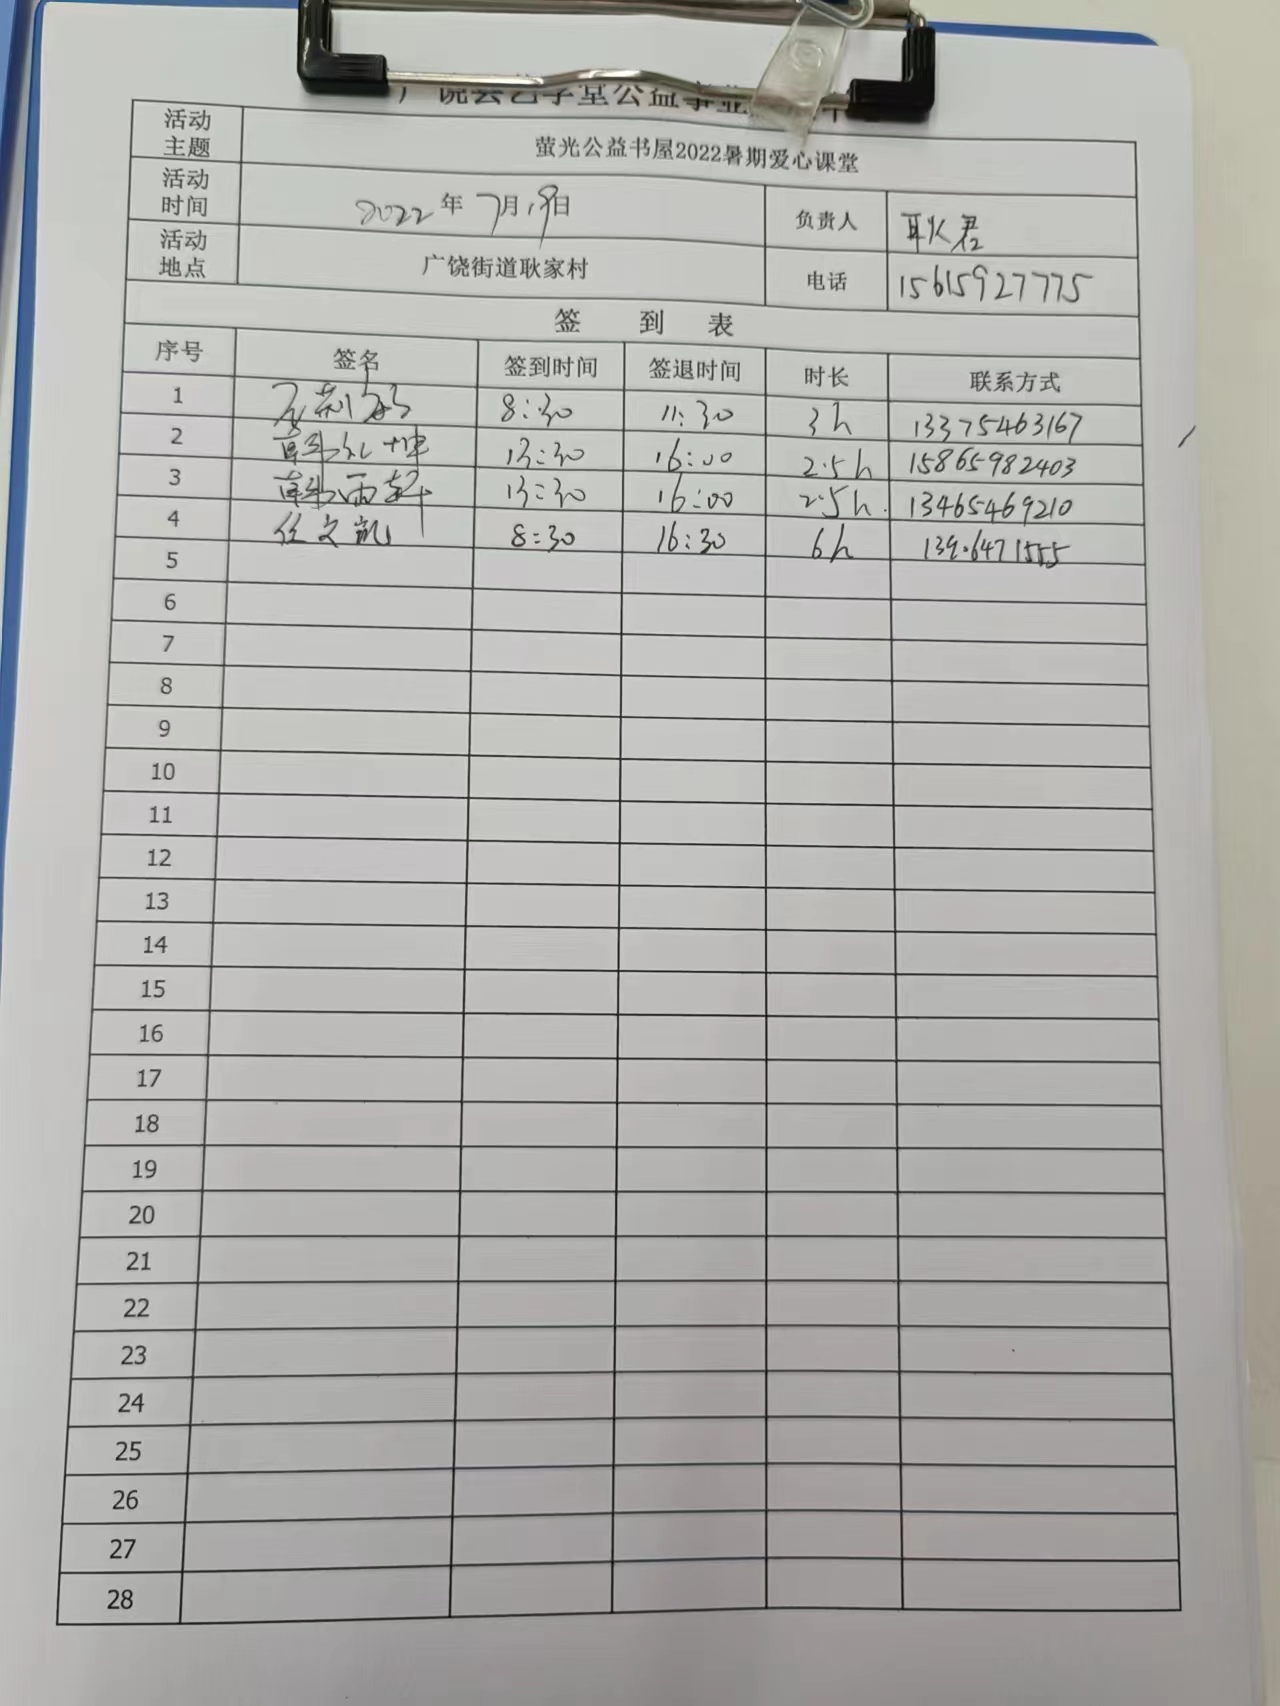 广饶县艺学堂公益事业
活动主题 萤光公益书屋2022暑期爱心课堂
活动时间 2022年7月19日 负责人 耿君
活动地点 广饶街道耿家村 电话 15615927775
签 到 表
序号 签名 签到时间 签退时间 时长 联系方式
1 8:30 11:30 3h 13375463167
2 13:30 16:00 2.5h 15865982403
3 韩雨轩 13:30 16:00 2.5h. 13465469210
4 任文凯 8:30 16:30 6h 139.6471555
5
6
7
8
9
10
11
12
13
14
15
16
17
18
19
20
21
22
23
24
25
26
27
28